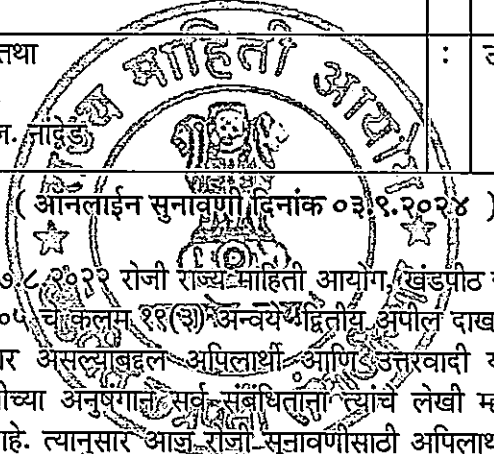 तथा : उ
ज. नांदेड
राज्य माहिती आयोग
( ऑनलाईन सुनावणी दिनांक ०३.९.२०२४ )
७.८.२०२२ रोजी राज्य माहिती आयोग, खंडपीठ
०५ चे कलम १९(३) अन्वये द्वितीय अपील दाख
र असल्याबद्दल अपिलार्थी आणि उत्तरवादी
ीच्या अनुषंगाने सर्व संबंधितांना त्यांचे लेखी म्ह
ाहे. त्यानुसार आज रोजी सुनावणीसाठी अपिलार्थ